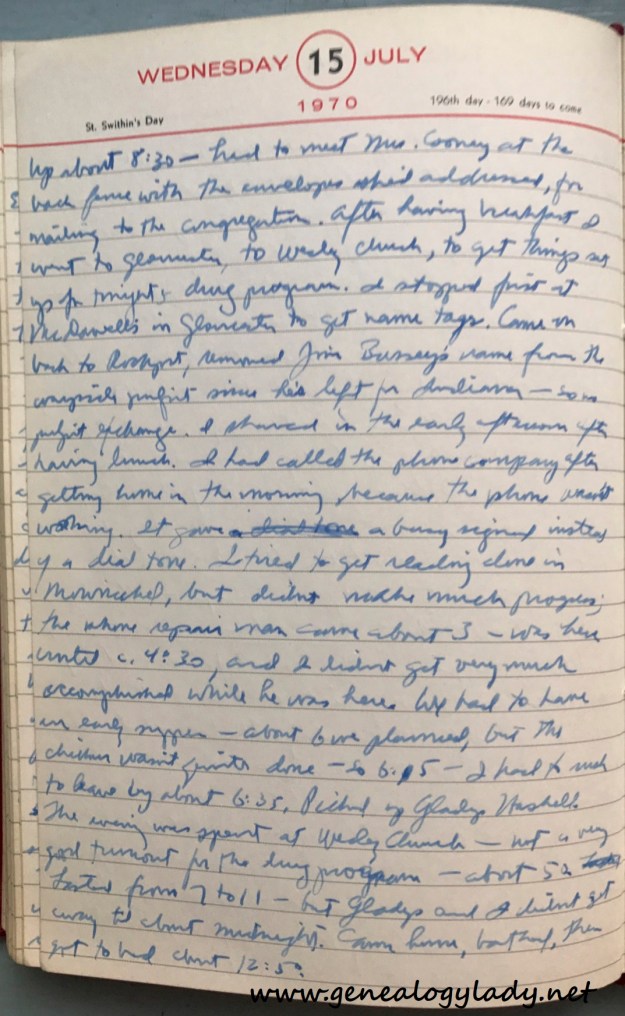 WEDNESDAY 15 JULY
1970
St. Swithin's Day
196th day - 169 days to come
Up about 8:30 — had to meet Mrs. Cooney at the
back fence with the envelopes she'd addressed, for
mailing to the congregation. After having breakfast I
went to Gloucester, to Wesley Church, to get things set
up for tonight's drug program. I stopped first at
McDowell's in Gloucester to get name tags. Came on
back to Rockport, removed Jim Bussey's name from the
pulpit since he's left for Indiana — so no
pulpit exchange. I shaved in the early afternoon after
having lunch. I had called the phone company after
getting home in the morning because the phone wasn't
working. It gave a dial tone a busy signal instead
of a dial tone. I tried to get reading done in
but didn't make much progress;
the phone repair man came about 3 — was here
until c. 4:30, and I didn't get very much
accomplished while he was here. We had to have
an early supper — about 6 we planned, but the
chicken wasn't quite done — so 6:15 — I had to rush
to leave by about 6:35. Picked up Gladys Haskell.
The evening was spent at Wesley Church — not a very
good turnout for the drug program — about 50
Lasted from 7 to 11 — but Gladys and I didn't get
away til about midnight. Came home, bathed, then
got to bed about 12:50.
www.genealogylady.net